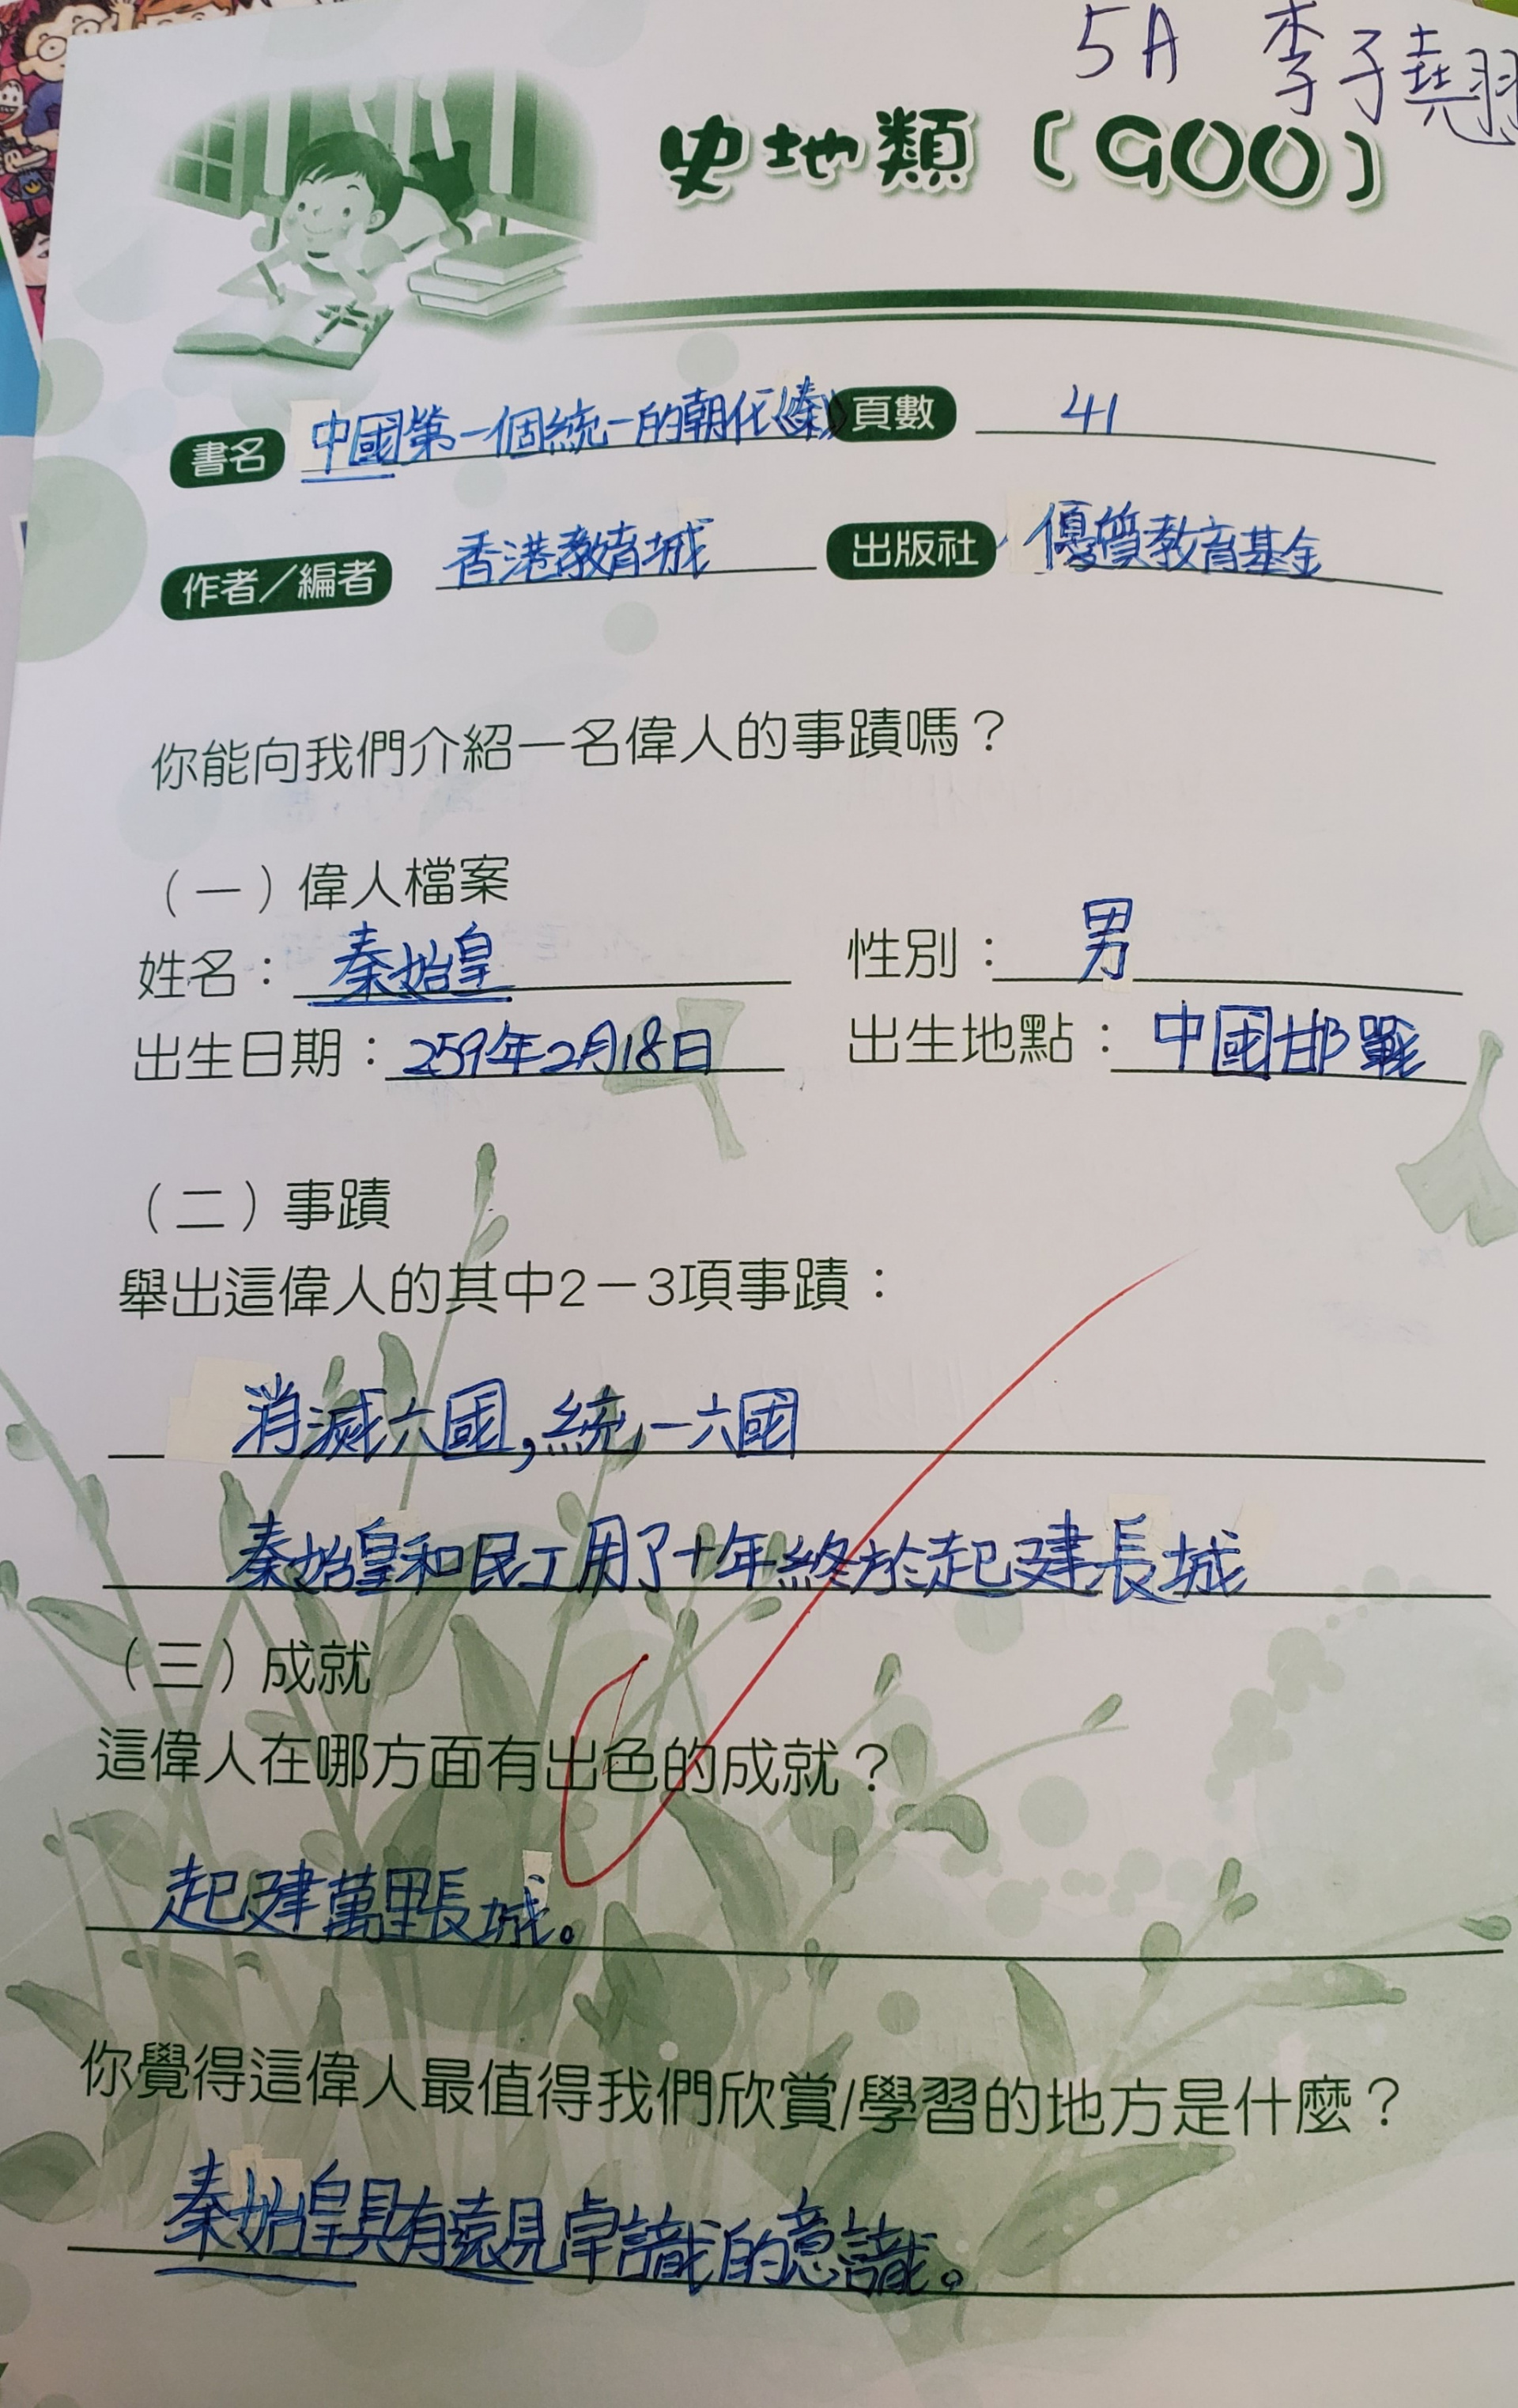 5A 李子堯翹
史地類〔900〕
書名 中國第一個統一的朝代《秦》 頁數 41
作者／編者 香港教育城 出版社 優質教育基金
你能向我們介紹一名偉人的事蹟嗎？
（一）偉人檔案
姓名： 秦始皇 性別： 男
出生日期： 259年2月18日 出生地點： 中國邯戰
（二）事蹟
舉出這偉人的其中2－3項事蹟：
消滅六國,統一六國
秦始皇和民工用了十年終於起建長城
（三）成就
這偉人在哪方面有出色的成就？
起建萬里長城。
你覺得這偉人最值得我們欣賞/學習的地方是什麼？
秦始皇具有遠見卓識的意識。